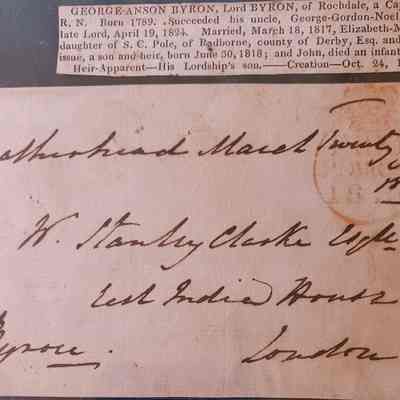 GEORGE-ANSON BYRON, Lord BYRON, of Rochdale, a Ca
R. N. Born 1789. Succeeded his uncle, George-Gordon-Noel
late Lord, April 19, 1824. Married, March 18, 1817, Elizabeth-M
daughter of S. C. Pole, of Radborne, county of Derby, Esq. and
issue, a son and heir, born June 30, 1818; and John, died an infant
Heir-Apparent—His Lordship's son.—Creation—Oct. 24, 1
atherhead March Twenty
W. Stanley Clarke Esqre
East India House
London
Byron.